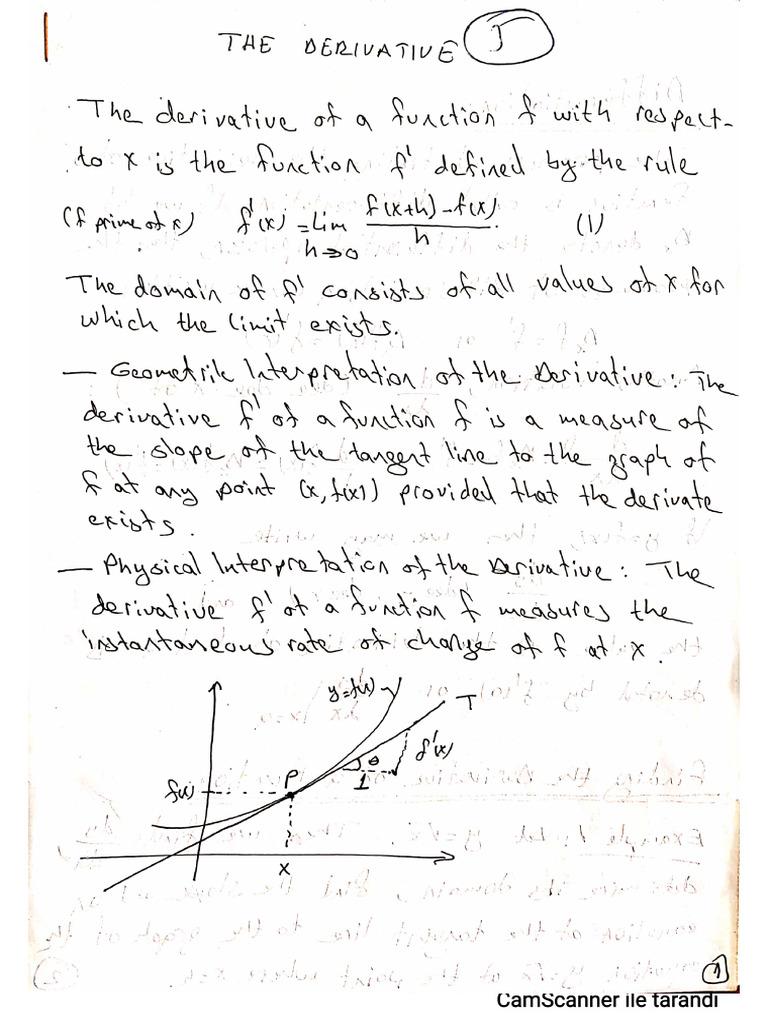 THE DERIVATIVE 5
The derivative of a function f with respect
to x is the function f' defined by the rule
(f prime of x) f'(x) = lim h→0 f(x+h)-f(x) / h. (1)
The domain of f' consists of all values of x for
which the limit exists.
— Geometrik Interpretation of the Derivative: The
derivative f' of a function f is a measure of
the slope of the tangent line to the graph of
f at any point (x, f(x)) provided that the derivate
exists.
— Physical Interpretation of the Derivative: The
derivative f' of a function f measures the
instantaneous rate of change of f at x.
y=f(x)
T
f'(x)
θ
1
P
f(x)
x
1
CamScanner ile tarandı